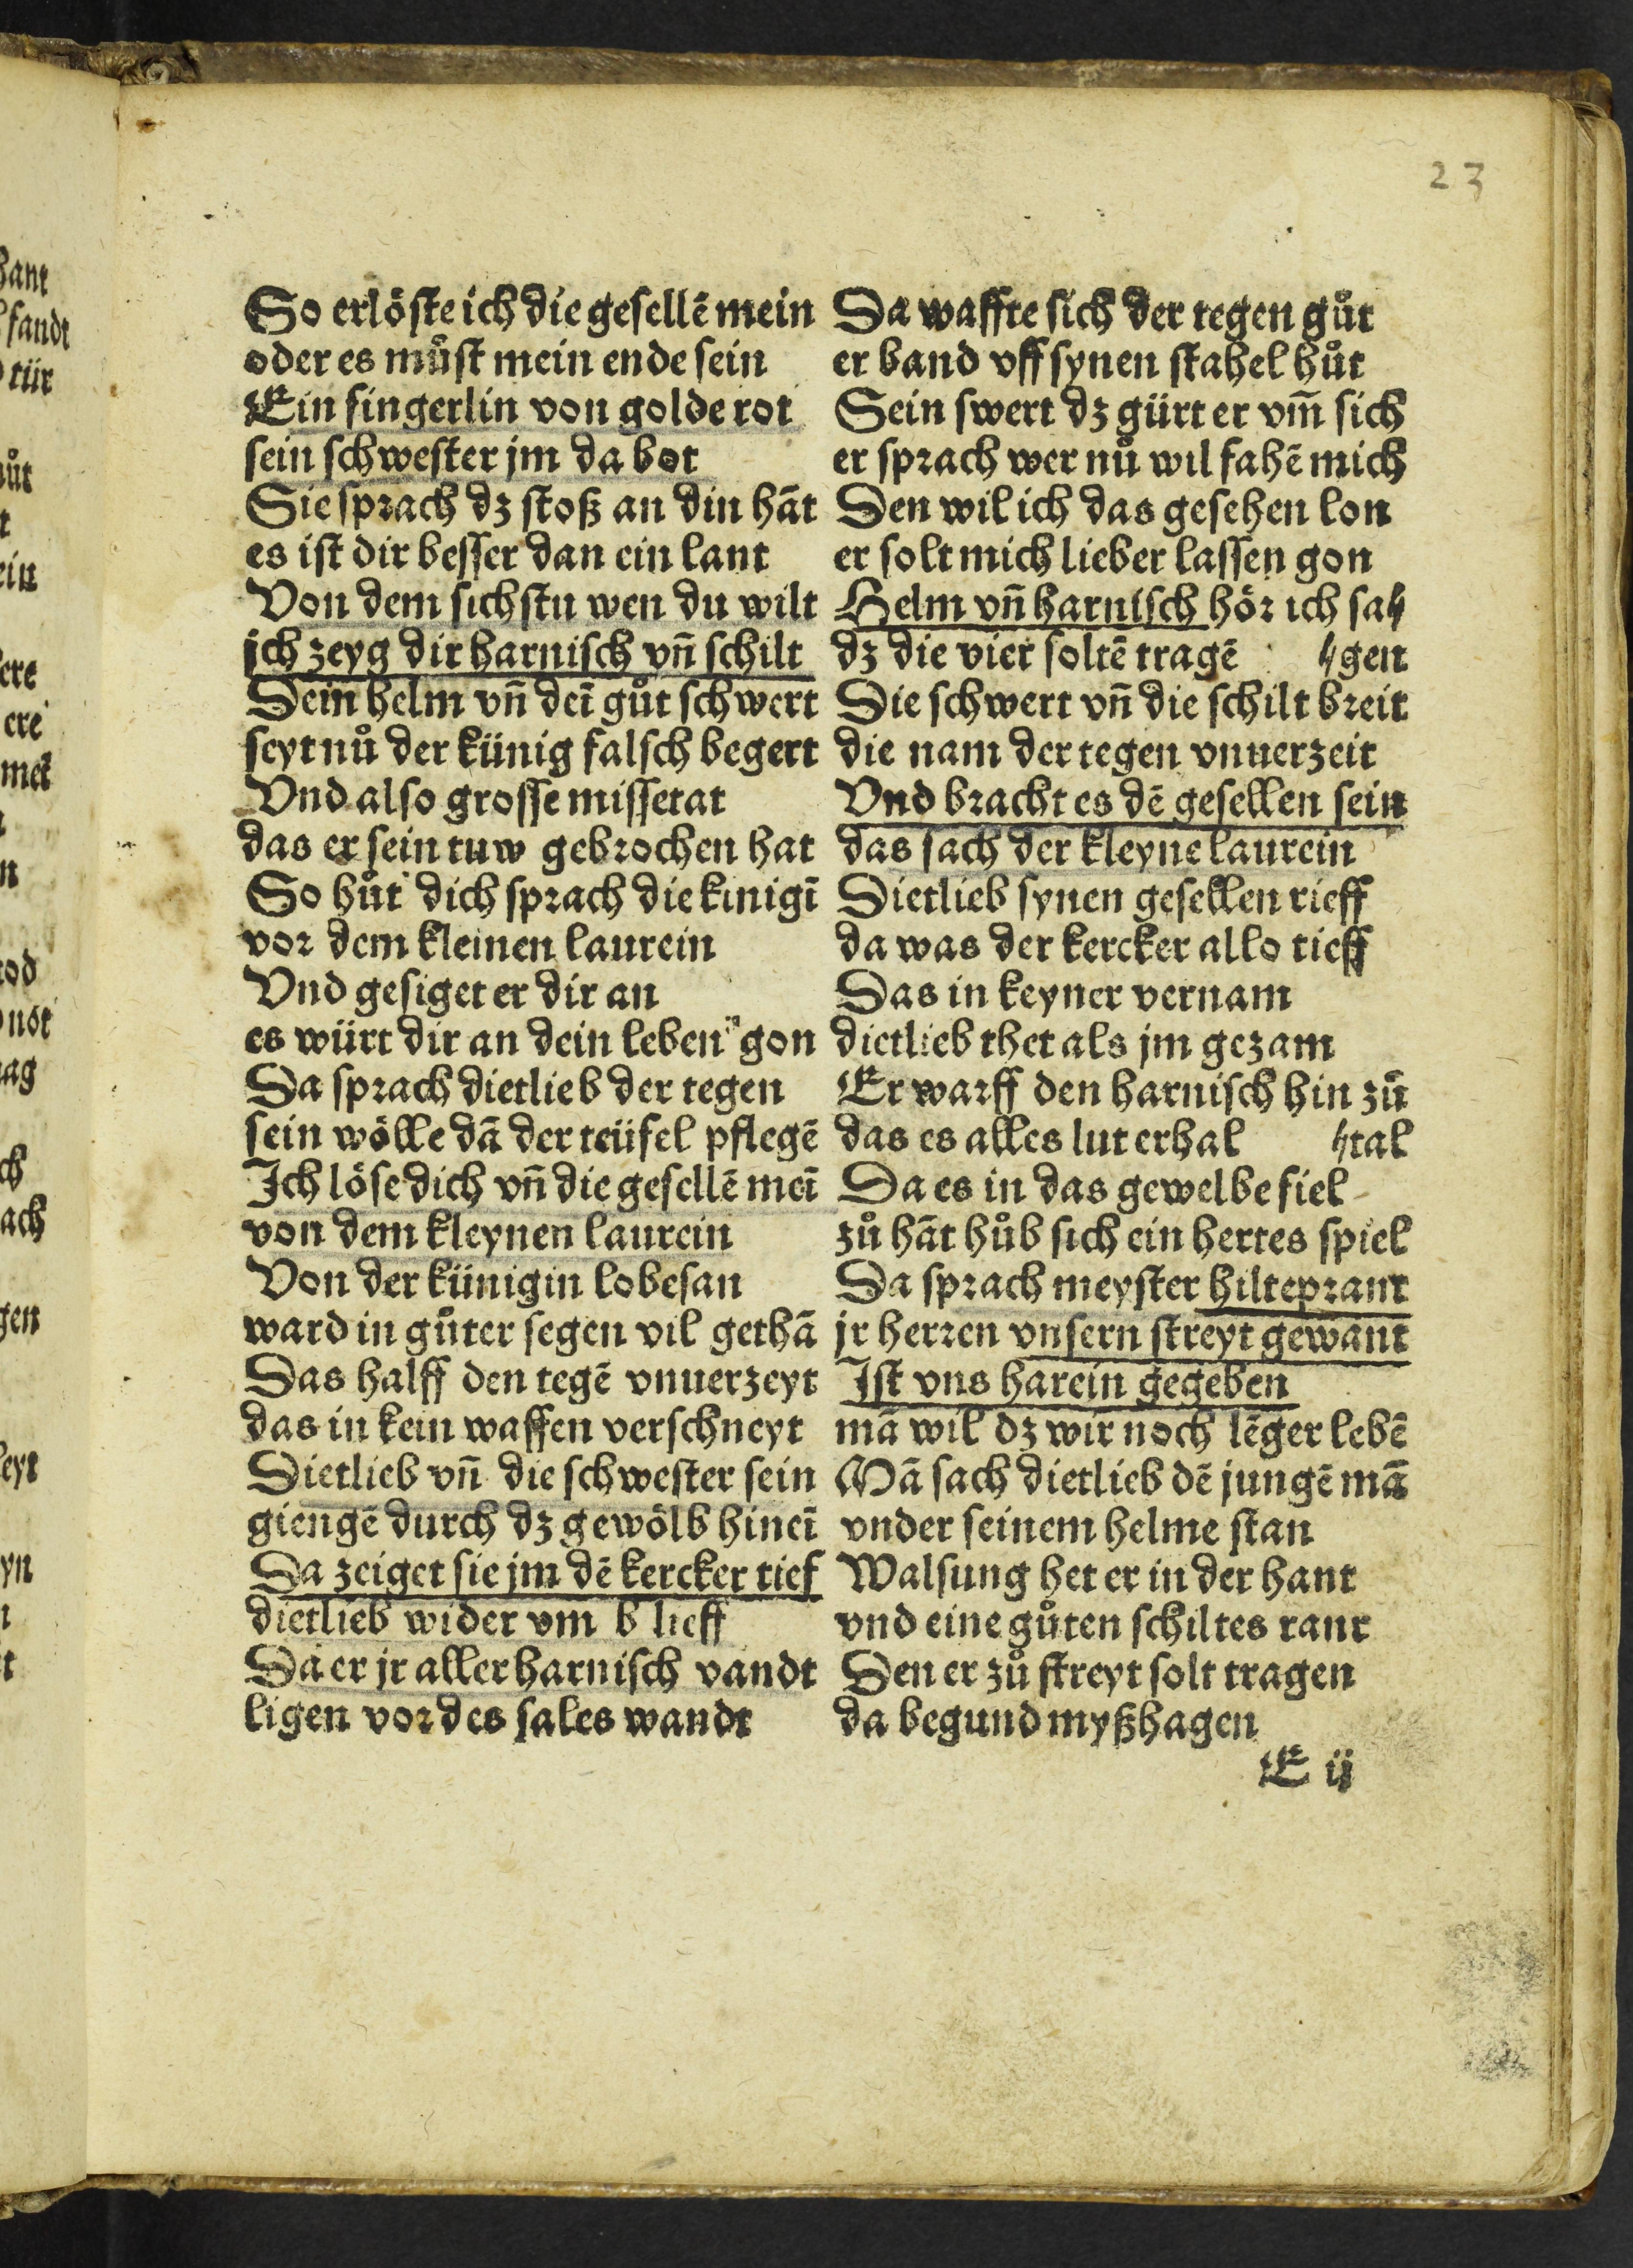 23
So erlöste ich die gesellē mein
oder es můst mein ende sein
Ein fingerlin von golde rot
sein schwester jm da bot
Sie sprach dz stoß an din hāt
es ist dir besser dan ein lant
Von dem sichstu wen du wilt
jch zeyg dir harnisch vñ schilt
Dein helm vñ deī gůt schwert
seyt nů der künig falsch begert
Vnd also grosse missetat
das er sein tuw gebrochen hat
So hůt dich sprach die kinigī
vor dem kleinen laurein
Vnd gesiget er dir an
es würt dir an dein leben gon
Da sprach dietlieb der tegen
sein wölle dā der teüfel pflegē
Ich löse dich vñ die gesellē meī
von dem kleynen laurein
Von der künigin lobesan
ward in gůter segen vil gethā
Das halff den tegē vnuerzeyt
das in kein waffen verschneyt
Dietlieb vñ die schwester sein
giengē durch dz gewölb hineī
Da zeiget sie jm dē kercker tief
dietlieb wider vm b lieff
Da er jr aller harnisch vandt
ligen vor des sales wandt
Da waffte sich der tegen gůt
er band vff synen stahel hůt
Sein swert dz gürt er vm̄ sich
er sprach wer nů wil fahē mich
Den wil ich das gesehen lon
er solt mich lieber lassen gon
Helm vñ harnisch hör ich sa
dz die vier soltē tragē gen
Die schwert vñ die schilt breit
die nam der tegen vnuerzeit
Vnd bracht es dē gesellen sein
das sach der kleyne laurein
Dietlieb synen gesellen rieff
da was der kercker allo tieff
Das in keyner vernam
dietlieb thet als jm gezam
Er warff den harnisch hin zů
das es alles lut erhal tal
Da es in das gewelbe fiel
zů hāt hůb sich ein hertes spiel
Da sprach meyster hilteprant
jr herren vnsern streyt gewant
Ist vns harein gegeben
mā wil dz wir noch lēger lebē
Mā sach dietlieb dē jungē mā
vnder seinem helme stan
Walsung het er in der hant
vnd eine gůten schiltes rant
Den er zů streyt solt tragen
da begund myßhagen
E ij